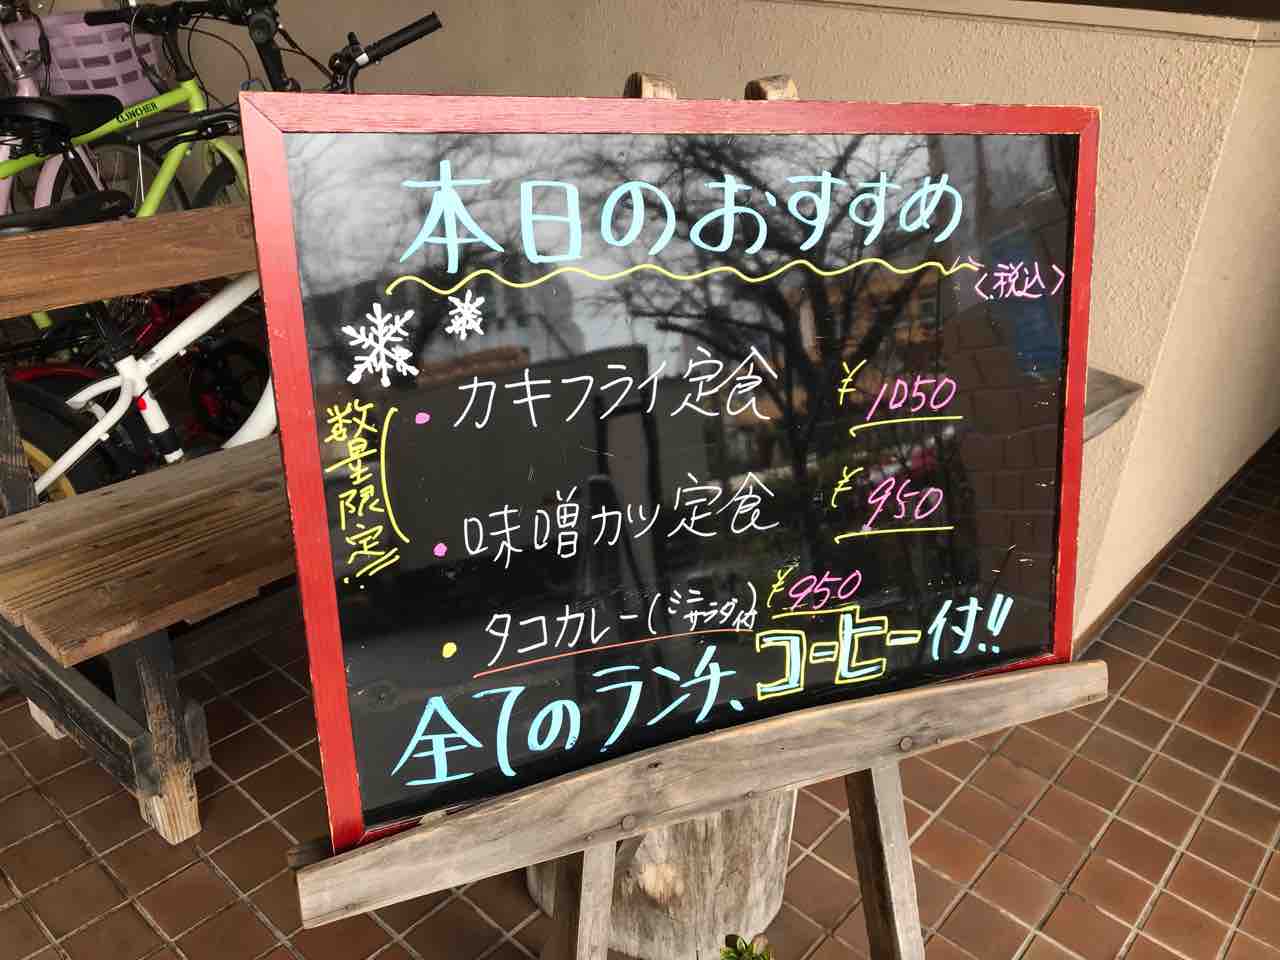 CLINCHER
本日のおすすめ
〈税込〉
数量限定!!
・カキフライ定食 ¥1050
・味噌カツ定食 ¥950
・タコカレー(ミニサラダ付) ¥950
全てのランチ、コーヒー付!!